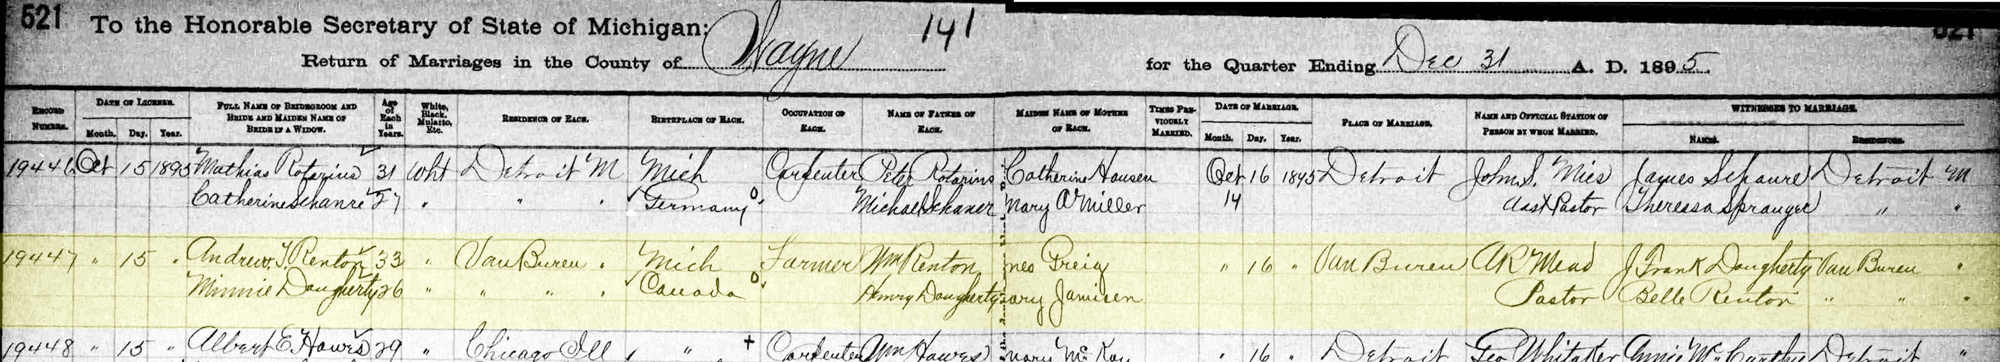 521
To the Honorable Secretary of State of Michigan: 141
Return of Marriages in the County of Wayne for the Quarter Ending Dec 31 A. D. 1895.
521
RECORD NUMBER. DATE OF LICENSE. Month. Day. Year. FULL NAME OF BRIDEGROOM AND BRIDE AND MAIDEN NAME OF BRIDE IF A WIDOW. Age of Each in Years. White, Black, Mulatto, Etc. RESIDENCE OF EACH. BIRTHPLACE OF EACH. OCCUPATION OF EACH. NAME OF FATHER OF EACH. MAIDEN NAME OF MOTHER OF EACH. TIMES PREVIOUSLY MARRIED. DATE OF MARRIAGE. Month. Day. Year. PLACE OF MARRIAGE. NAME AND OFFICIAL STATION OF PERSON BY WHOM MARRIED. WITNESSES TO MARRIAGE. NAMES. RESIDENCES.
19446 Oct 15 1895 Mathias Rotarius 31 Wht Detroit M Mich Carpenter Peter Rotarius Catherine Hausen Oct 16 1895 Detroit John S. Mies James Schaure Detroit M
Catherine Schanre 27 " " " Germany 0 " Michael Schaner Mary A Miller 14 Asst Pastor Theressa Sprauger " "
19447 " 15 " Andrew J. Renton 33 " Van Buren " Mich Farmer Wm Renton nes Greig " 16 " Van Buren AR Mead J Frank Daugherty Van Buren "
Minnie Daugherty 26 " " " " Canada 0 " Henry Daugherty ary Jamisen Pastor Belle Renton " " "
19448 " 15 " Albert E. Hawes 29 " Chicago Ill , " + Carpenter Wm Hawes Mary McKay " 16 " Detroit Geo Whitaker Annie McCarthy Detroit "